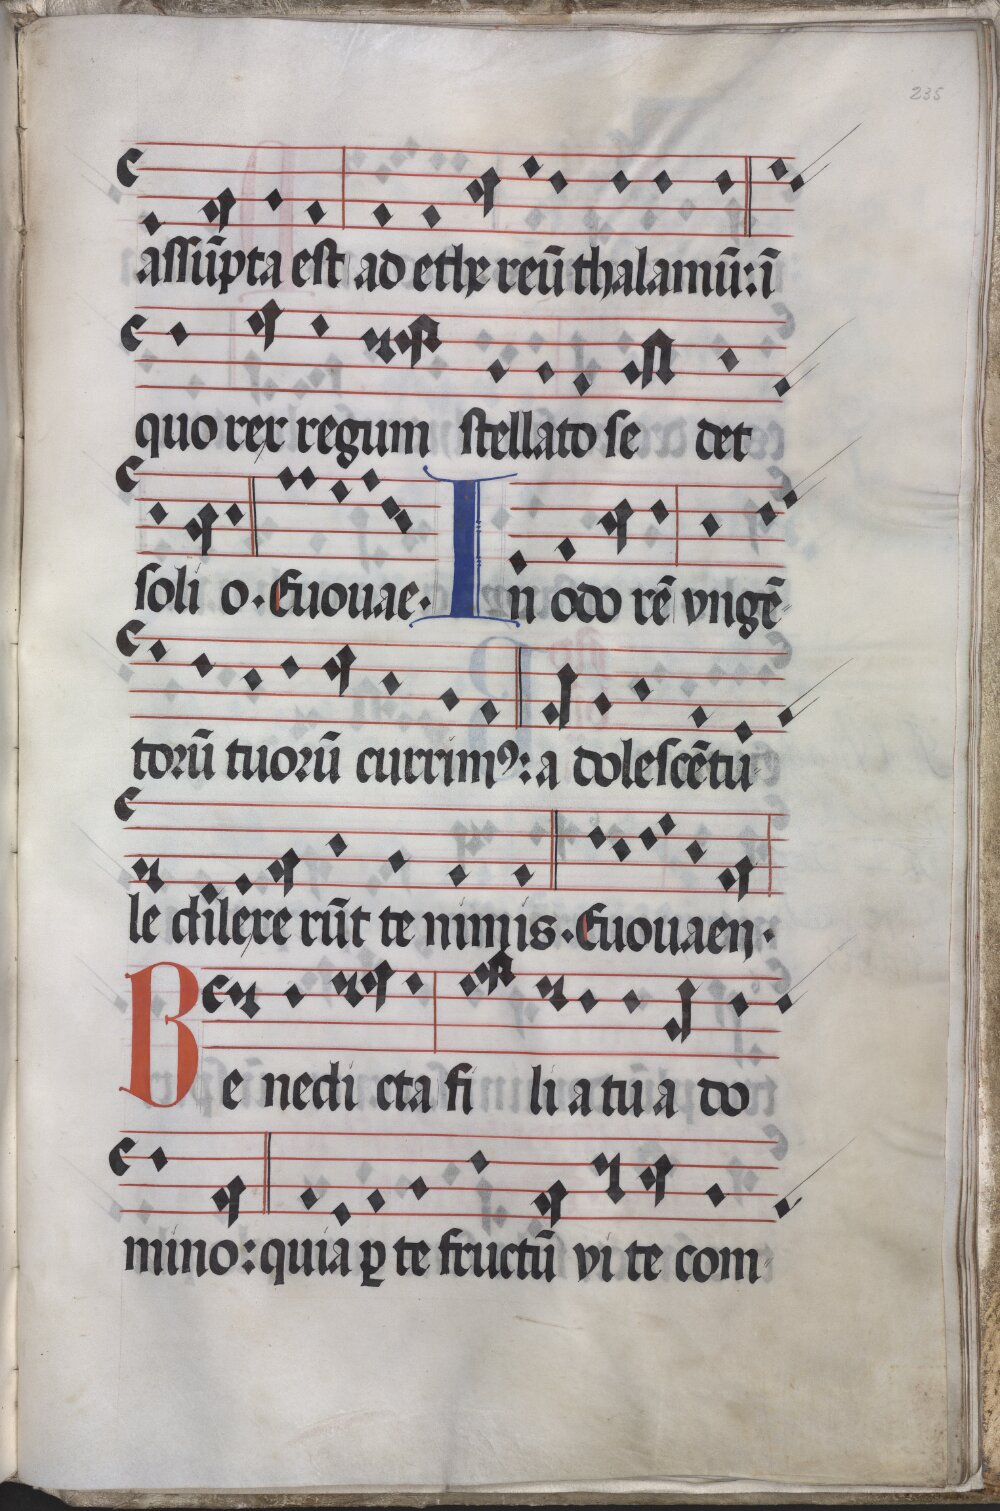 235
assūpta est ad ethe reū thalamū: ī
quo rex regum stellato se det
soli o. Euouae. In odo rē vngē-
torū tuorū currim⁹: a dolescētu-
le dilexe rūt te nimis. Euouaen.
Be nedi cta fi li a tu a do
mino: quia ꝑ te fructū vi te com-